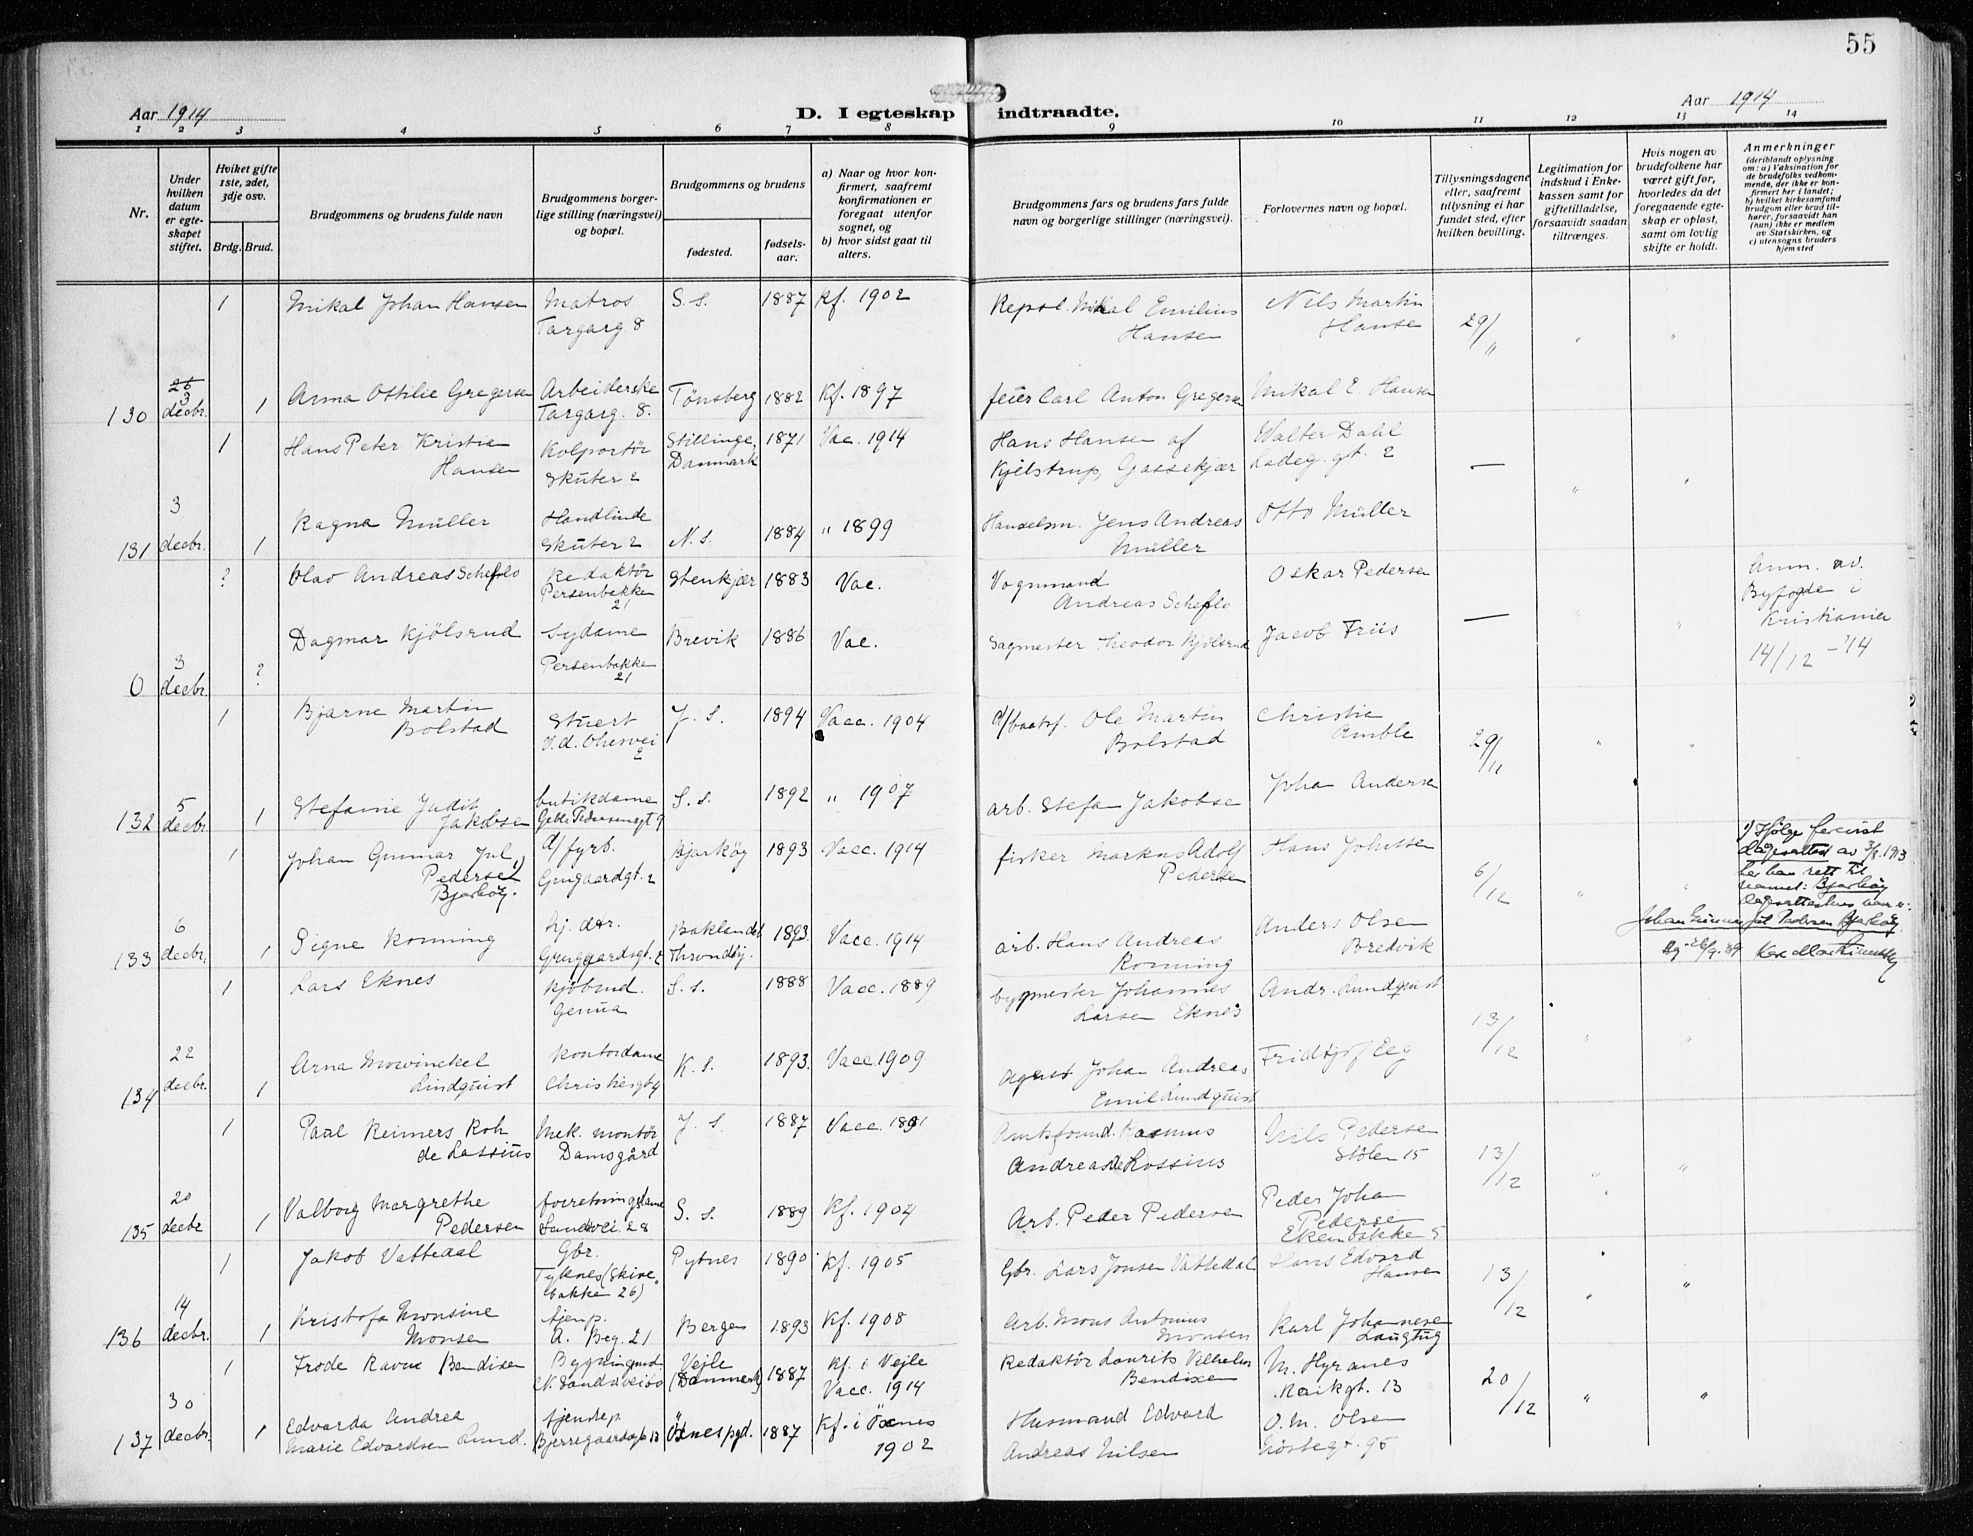 55
Aar 1914
D. I egteskap indtraadte.
Aar 1914
1 2 3 4 5 6 7 8 9 10 11 12 13 14
Nr.
Under hvilken datum er egteskapet stiftet.
Hviket gifte 1ste, 2det, 3dje osv.
Brdg. Brud.
Brudgommens og brudens fulde navn
Brudgommens borgerlige stilling (næringsvei) og bopæl.
Brudgommens og brudens
fødested.
fødselsaar.
a) Naar og hvor konfirmert, saafremt konfirmationen er foregaat utenfor sognet, og
b) hvor sidst gaat til alters.
Brudgommens fars og brudens fars fulde navn og borgerlige stillinger (næringsvei).
Forlovernes navn og bopæl.
Tillysningsdagene eller, saafremt tillysning ei har fundet sted, efter hvilken bevilling.
Legitimation for indskud i Enkekassen samt for giftetilladelse, forsaavidt saadan tiltrænges.
Hvis nogen av brudefolkene har været gift før, hvorledes da det foregaaende egteskap er opløst, samt om lovlig skifte er holdt.
Anmerkninger
(deriblandt oplysning om: a) Vaksination for de brudefolks vedkommende, der ikke er konfirmert her i landet; b) hvilket kirkesamfund brudgom eller brud tilhører, forsaavidt han (hun) ikke er medlem av Statskirken, og c) utensogns bruders hjemsted
1 Mikal Johan Hansen Matros S. s. 1887 Kf. 1902 Repsl. Mikal Emilius Nils Martin
Targarg. 8 Hansen Hanse 29/11 " "
130 3 decbr. 1 Anna Ottilie Gregersen Arbeiderske Tønsberg 1882 Kf. 1897 feier Carl Anton Gregersen Mikal E. Hansen
Targarg. 8.
1 Hans Peter Kristian Kolportör Stillinge, 1871 Vac. 1914 Hans Hansen af Walter Dahl
Hansen Skuter 2 Danmark Kjelstrup, Gassekjær Ladeg. gt. 2 —
131 3 decbr. 1 Ragna Müller Handlinde N. s. 1884 " 1899 Handelsm. Jens Andreas Otto Müller " "
Skuter 2 Müller
? Olav Andreas Scheflo Redaktör Stenkjær 1883 Vac. Vognmand Oskar Pedersen Anm. av.
Persenbakken 21 Andreas Scheflo Byfogde i
0 3 decbr. ? Dagmar Kjölsrud Sydame Brevik 1886 Vac. Sagmester Theodor Kjölsrud Jacob Friis — " Kristiania
Persenbakken 21 14/12 - '14
1 Bjarne Martin Stuert J. S. 1894 Vacc. 1904 Ole Martin Christie
Bolstad Bolstad Amble 29/11 " "
132 5 decbr 1 Stefanie Judit butikdame S. s. 1892 " 1907 arb. Stefan Jakobse Joha Andersen
Jakobsen Geble Pedersensgt 9
1 Johan Gunnar Jul 1) d/fyrb. Bjarkøy 1893 Vacc. 1914 fisker Markus Adolf Hans Johnsen
Pedersen Pedersen 6/12 " "
Bjarkøy.
133 6 decbr. 1 Signe Ronning Baklandet 1893 Vacc. 1914 arb. Hans Andreas Anders Olsen
Throndhj. Ronning Bredvik
1) Ifølge
av 3/8.1913
har han rett til
navnet: Bjarkøy
Johan Gunnar Jul Pedersen Bjarkøy
1 Lars Eknes Kjöbmd. S. s. 1888 Vacc. 1889 bygmester Johannes Andr. Lundquist
Genua Larsen Eknes 13/12 " "
134 22 decbr. 1 Arna Mowinckel Kontordame K. S. 1893. Vacc. 1909 agent Johan Andreas Fridtjof Eeg
Lindquist Christiesgt 4 Emil Lundquist
1 Paul Reimers Koh Mek. montör J. S. 1887 Vacc. 1891 Amtsfuldm. Rasmus Nils Pedersen
de Lassius Damsgård Andreas Stölen 15 13/12 " "
135 20 decbr 1 Valborg Margrethe forretningsdame S. s. 1889 Kf. 1904 Arb. Peder Pedersen Peder Joha
Pedersen Sandvei. 28 Pederse
1 Jakob Vattedal Gbr. 1890 Kf. 1905 Gbr. Lars Jonsen Vattedal Hans Edvard
bakken 26) Hansen 13/12 " "
136 14 decbr. 1 Kristofa Monsine tjenp. Bergen 1893 Kf. 1908 Arb. Mons Antonius Karl Johannesen
Monsen 21 Monsen Langtug
1 Frode Ravn Bendixen Vejle 1887 Kf. i Vejle Redaktör Laurits Vilhelm M. Hyranes
(Danmark) Vacc. 1914 Bendixen 13 20/12 " "
137 30 decbr. 1 Edvarda Andrea tjenstep. 1887 Kf. i Öxnes Husmand Edvard O. M. Olsen
Marie Edvardsen Lund. Bjerregaardsgt 13 1902 Andreas Nilsen Nöstegt. 95